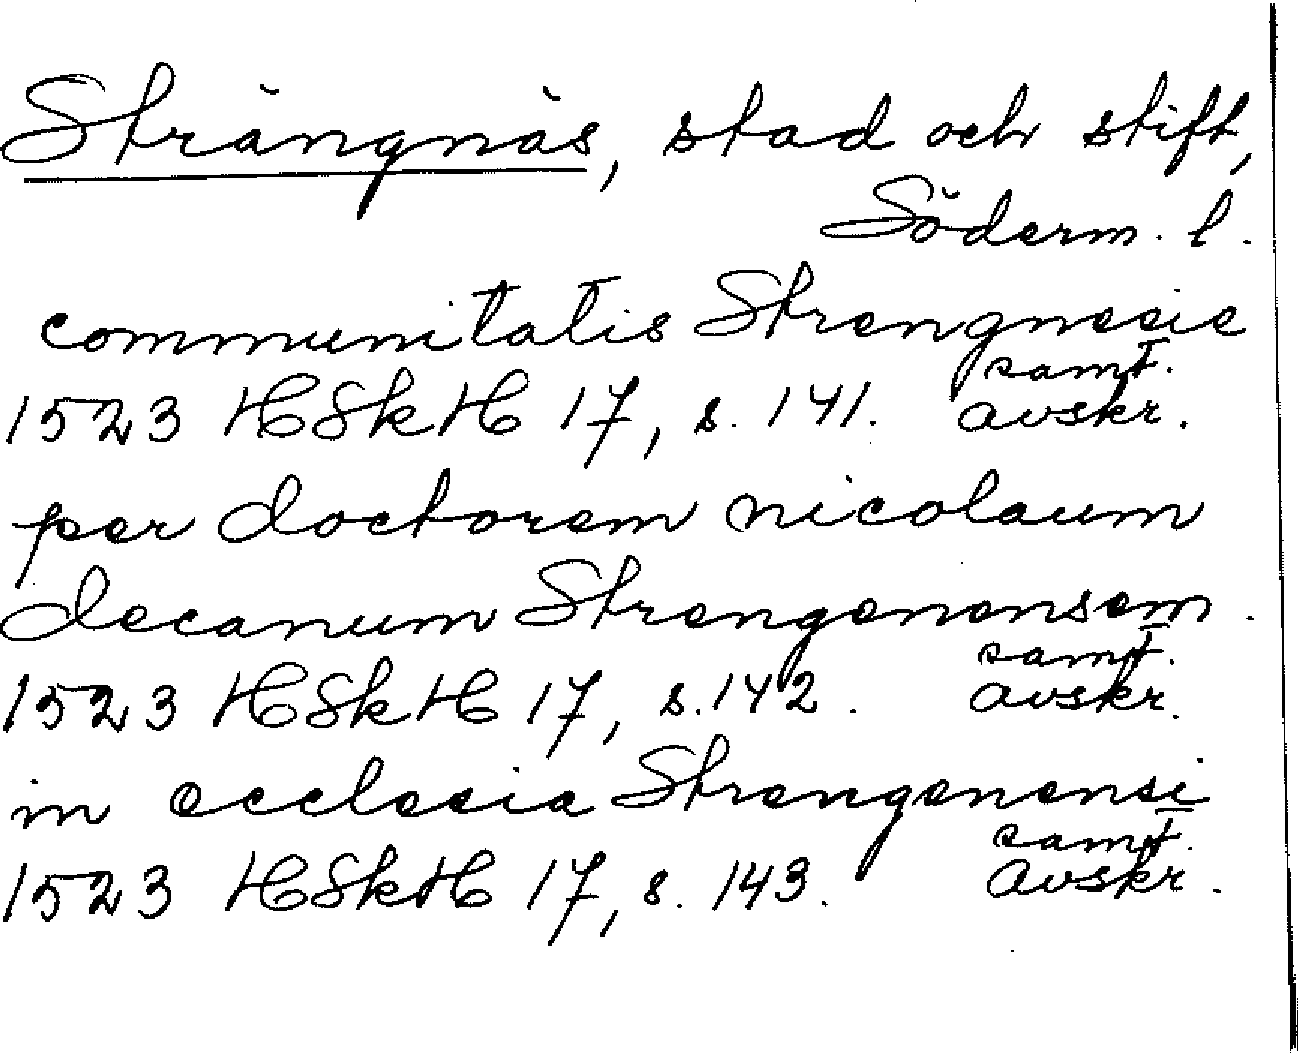 Strängnäs, stad och stift,
Söderm. l.
communitatis Strengnesie
samt.
1523 HSkH 17, s. 141. avskr.
per doctorem nicolaum
decanum Strengenensem.
samt.
1523 HSkH 17, s. 142. avskr.
in ecclesia Strengenensi
samt.
1523 HSkH 17, s. 143. avskr.